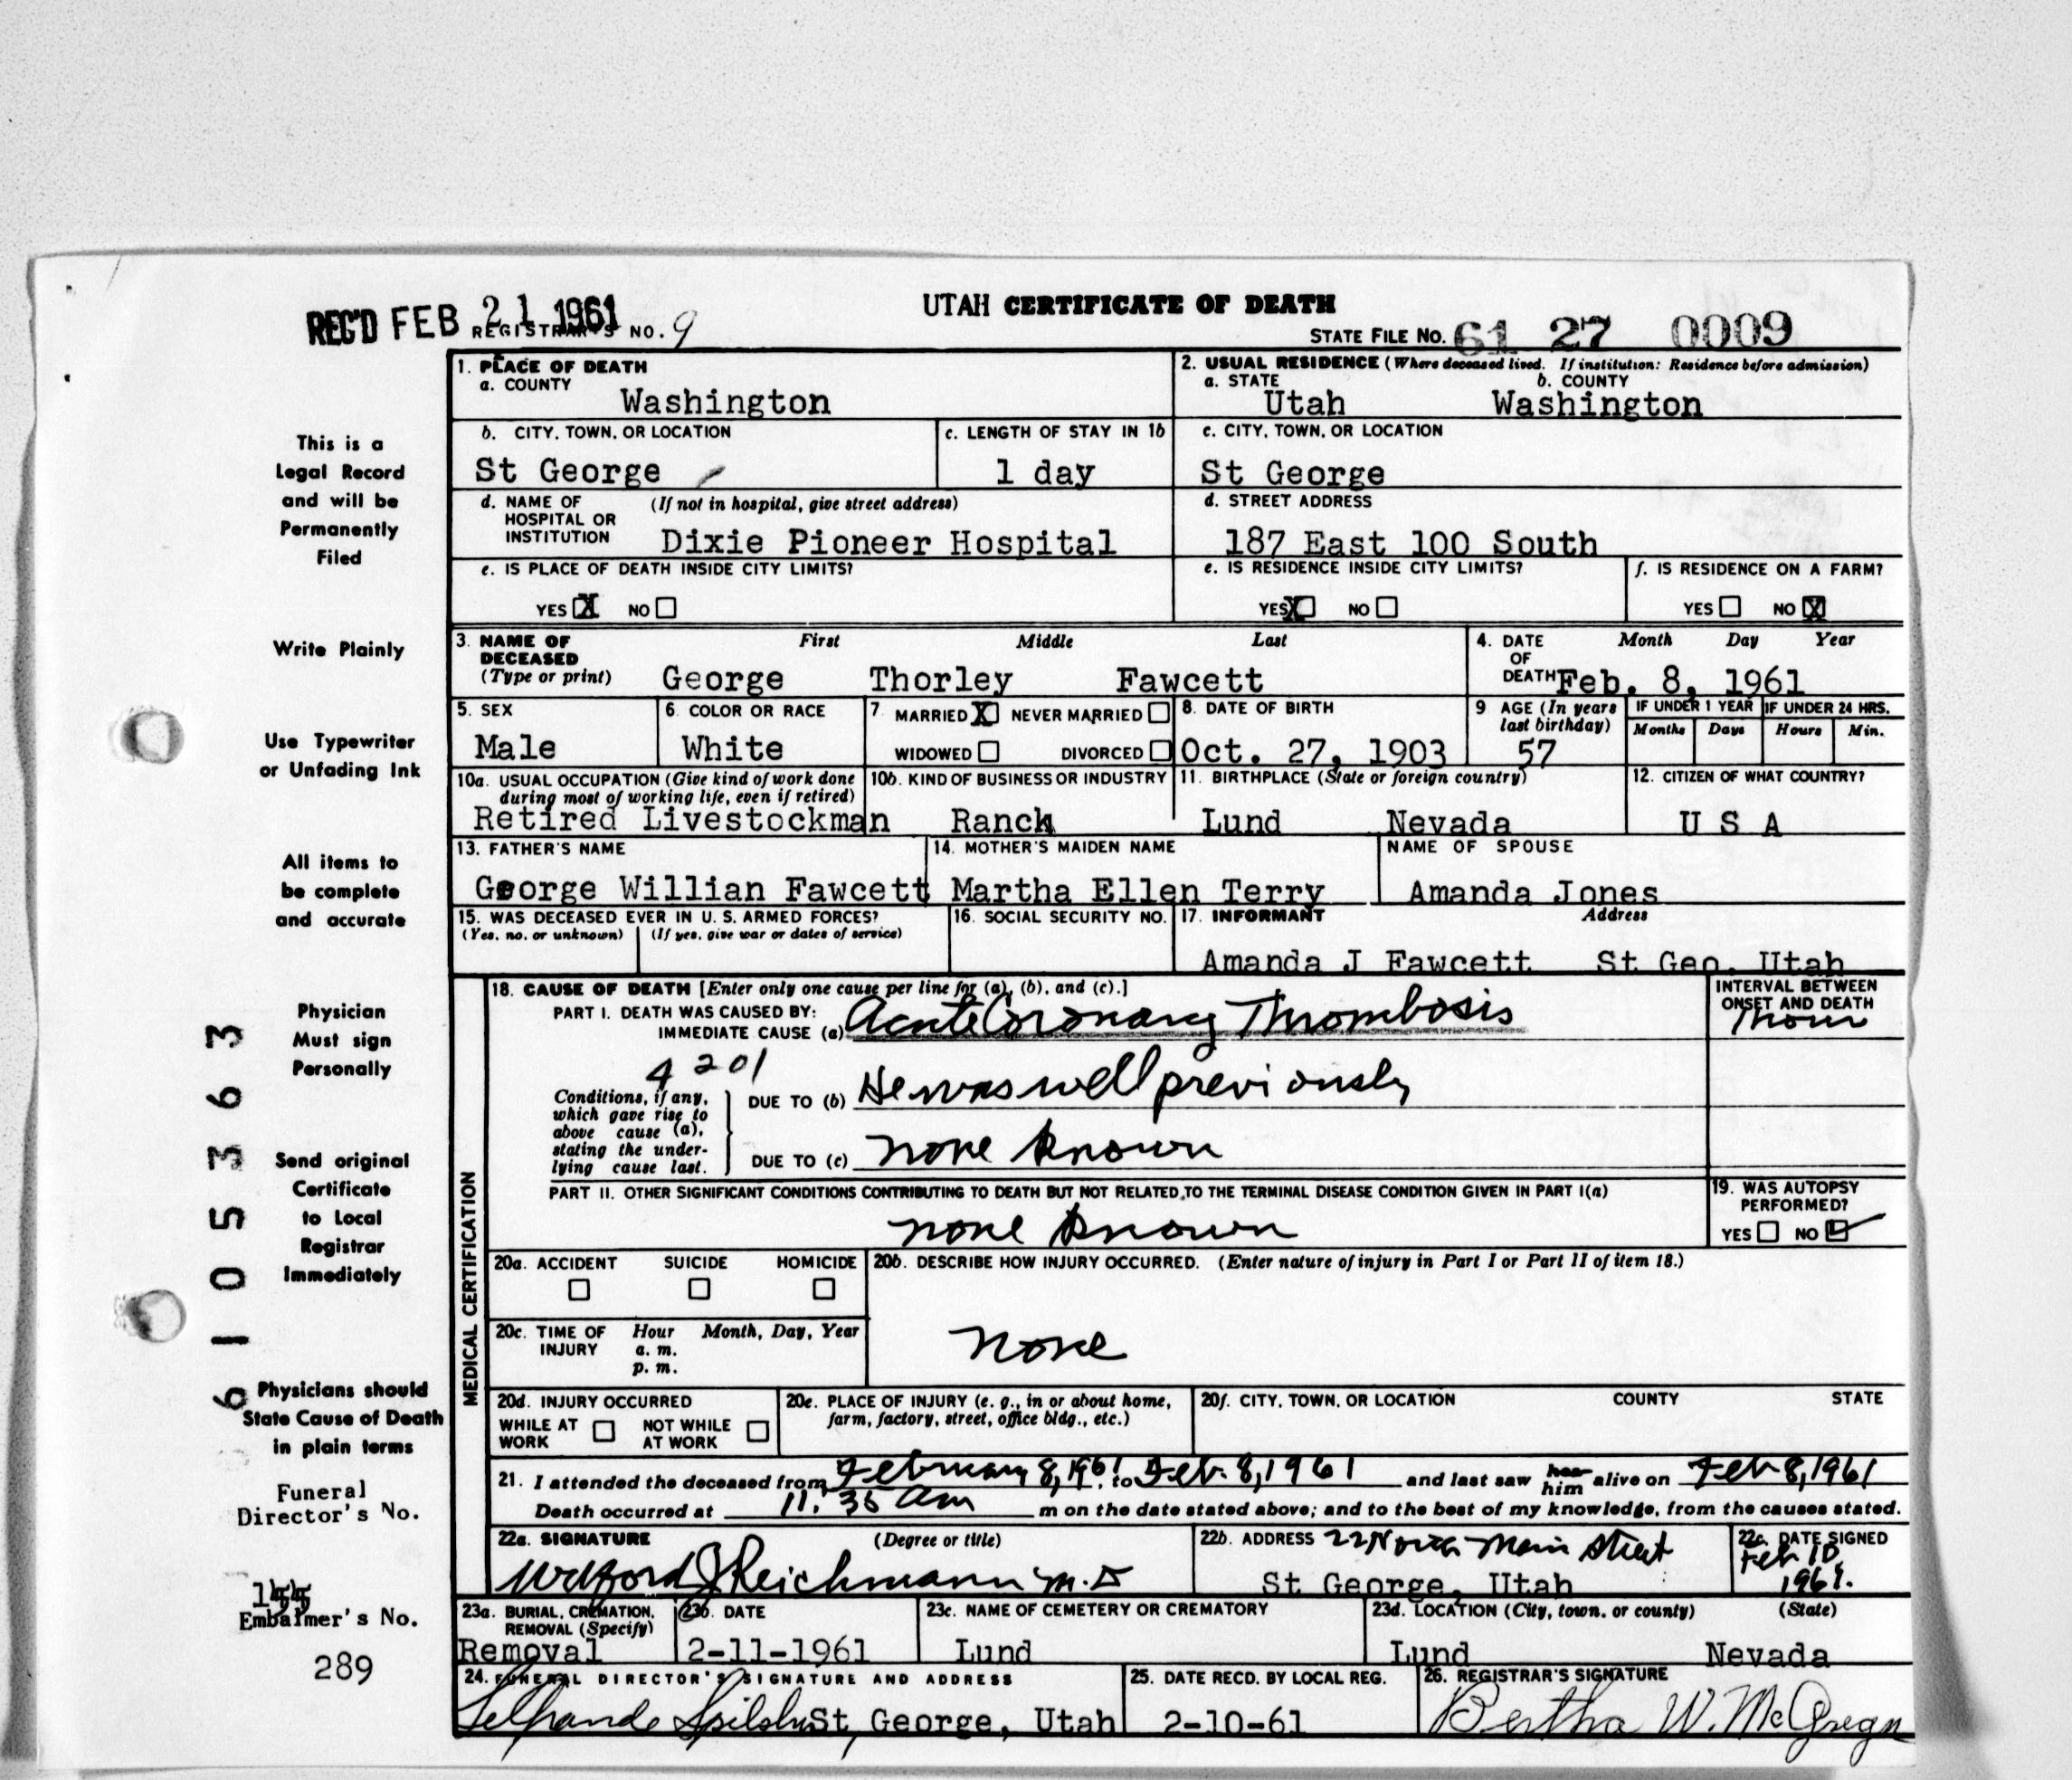 UTAH CERTIFICATE OF DEATH
REC'D FEB 21 1961
REGISTRAR'S NO. 9
STATE FILE No. 61 27 0009
1. PLACE OF DEATH
a. COUNTY
Washington
2. USUAL RESIDENCE (Where deceased lived. If institution: Residence before admission)
a. STATE b. COUNTY
Utah Washington
b. CITY, TOWN, OR LOCATION
St George
c. LENGTH OF STAY IN 1b
1 day
c. CITY, TOWN, OR LOCATION
St George
d. NAME OF HOSPITAL OR INSTITUTION (If not in hospital, give street address)
Dixie Pioneer Hospital
d. STREET ADDRESS
187 East 100 South
e. IS PLACE OF DEATH INSIDE CITY LIMITS?
YES X NO
e. IS RESIDENCE INSIDE CITY LIMITS?
YES X NO
f. IS RESIDENCE ON A FARM?
YES NO X
3. NAME OF DECEASED (Type or print)
First Middle Last
George Thorley Fawcett
4. DATE OF DEATH
Month Day Year
Feb. 8, 1961
5. SEX
Male
6. COLOR OR RACE
White
7. MARRIED X NEVER MARRIED
WIDOWED DIVORCED
8. DATE OF BIRTH
Oct. 27, 1903
9 AGE (In years last birthday)
57
IF UNDER 1 YEAR IF UNDER 24 HRS.
Months Days Hours Min.
10a. USUAL OCCUPATION (Give kind of work done during most of working life, even if retired)
Retired Livestockman
10b. KIND OF BUSINESS OR INDUSTRY
Ranch
11. BIRTHPLACE (State or foreign country)
Lund Nevada
12. CITIZEN OF WHAT COUNTRY?
U S A
13. FATHER'S NAME
George Willian Fawcett
14. MOTHER'S MAIDEN NAME
Martha Ellen Terry
NAME OF SPOUSE
Amanda Jones
15. WAS DECEASED EVER IN U. S. ARMED FORCES?
(Yes, no, or unknown) (If yes, give war or dates of service)
16. SOCIAL SECURITY NO.
17. INFORMANT Address
Amanda J Fawcett St Geo. Utah
MEDICAL CERTIFICATION
18. CAUSE OF DEATH [Enter only one cause per line for (a), (b), and (c).]
INTERVAL BETWEEN ONSET AND DEATH
1 hour
PART I. DEATH WAS CAUSED BY:
IMMEDIATE CAUSE (a) Acute Coronary Thrombosis
4201
Conditions, if any, which gave rise to above cause (a), stating the underlying cause last.
DUE TO (b) He was well previously
DUE TO (c) none known
PART II. OTHER SIGNIFICANT CONDITIONS CONTRIBUTING TO DEATH BUT NOT RELATED TO THE TERMINAL DISEASE CONDITION GIVEN IN PART I(a)
none known
19. WAS AUTOPSY PERFORMED?
YES NO
20a. ACCIDENT SUICIDE HOMICIDE
20b. DESCRIBE HOW INJURY OCCURRED. (Enter nature of injury in Part I or Part II of item 18.)
none
20c. TIME OF INJURY
Hour Month, Day, Year
a. m.
p. m.
20d. INJURY OCCURRED
WHILE AT WORK NOT WHILE AT WORK
20e. PLACE OF INJURY (e. g., in or about home, farm, factory, street, office bldg., etc.)
20f. CITY, TOWN, OR LOCATION COUNTY STATE
21. I attended the deceased from February 8, 1961, to Feb. 8, 1961 and last saw her him alive on Feb 8, 1961
Death occurred at 11:35 am m on the date stated above; and to the best of my knowledge, from the causes stated.
22a. SIGNATURE (Degree or title)
Wilford J Reichmann M.D
22b. ADDRESS 22 North Main Street
St George, Utah
22c. DATE SIGNED
Feb 10, 1961.
23a. BURIAL, CREMATION, REMOVAL (Specify)
Removal
23b. DATE
2-11-1961
23c. NAME OF CEMETERY OR CREMATORY
Lund
23d. LOCATION (City, town, or county) (State)
Lund Nevada
24. FUNERAL DIRECTOR'S SIGNATURE AND ADDRESS
St George, Utah
25. DATE RECD. BY LOCAL REG.
2-10-61
26. REGISTRAR'S SIGNATURE
Bertha W. McGregor
This is a
Legal Record
and will be
Permanently
Filed
Write Plainly
Use Typewriter
or Unfading Ink
All items to
be complete
and accurate
Physician
Must sign
Personally
Send original
Certificate
to Local
Registrar
Immediately
Physicians should
State Cause of Death
in plain terms
Funeral
Director's No.
Embalmer's No.
289
6105363